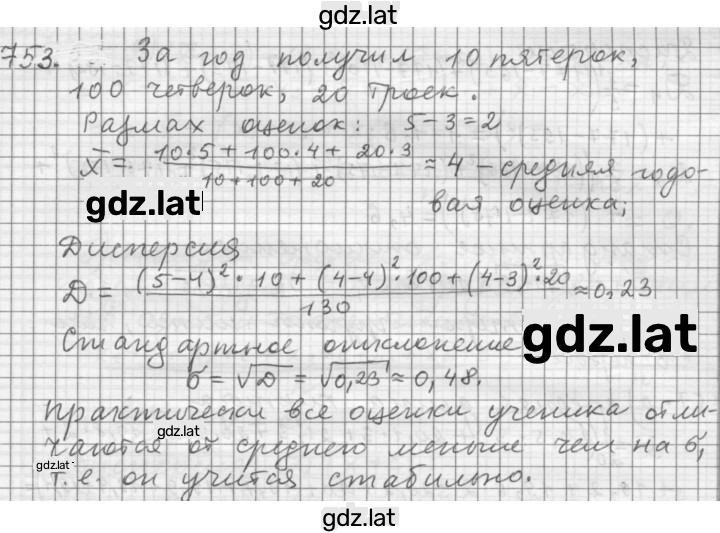 gdz.lat
753. За год получил 10 пятерок,
100 четверок, 20 троек.
Размах оценок: 5-3=2
x̄ = (10·5+100·4+20·3)/(10+100+20) ≈ 4 – средняя годо-
gdz.lat
вая оценка;
Дисперсия
D = ((5-4)²·10+(4-4)²·100+(4-3)²·20)/130 ≈ 0,23
Стандартное отклонение
gdz.lat
σ = √D = √0,23 ≈ 0,48.
Практически все оценки ученика отли-
gdz.lat
чаются от среднего меньше чем на σ,
gdz.lat
т.е. он учится стабильно.
gdz.lat